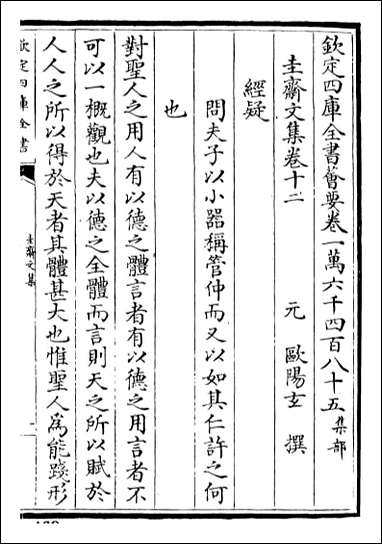 欽定四庫全書薈要卷一萬六千四百八十五 集部
圭齋文集卷十二
元 歐陽玄 撰
經疑
問夫子以小器稱管仲而又以如其仁許之何
也
對聖人之用人有以德之體言者有以德之用言者不
可以一概觀也夫以德之全體而言則天之所以賦於
人人之所以得於天者其體甚大也惟聖人為能踐形
欽定四庫全書
圭齋文集
一